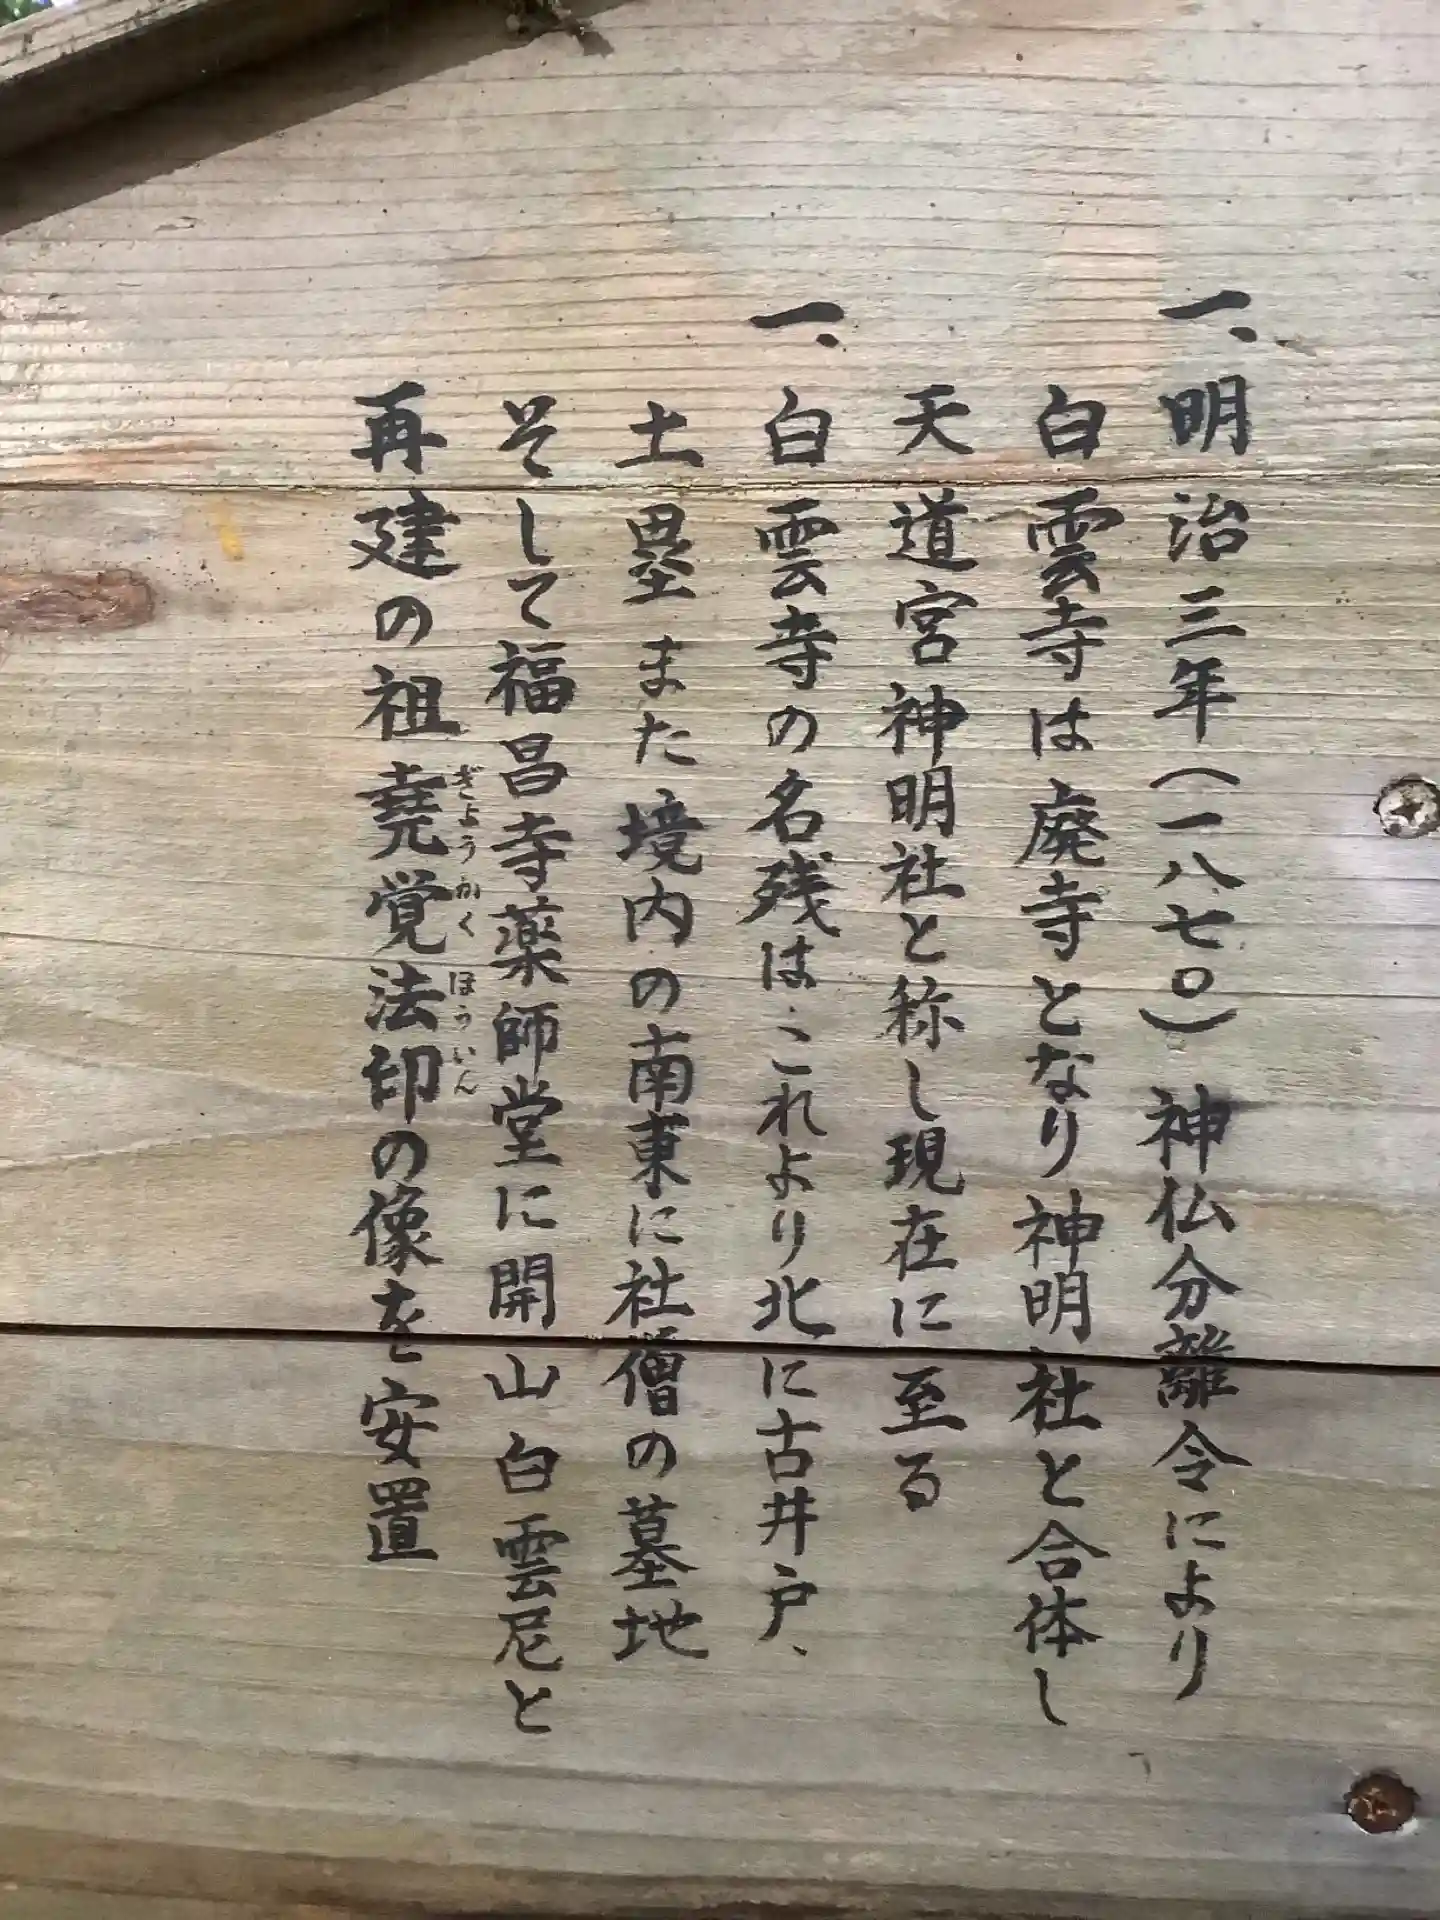 一、明治三年（一八七〇）神仏分離令により
白雲寺は廃寺となり神明社と合体し
天道宮神明社と称し現在に至る
一、白雲寺の名残はこれより北に古井戸、
土塁また境内の南東に社僧の墓地
そして福昌寺薬師堂に開山白雲尼と
再建の祖堯覚法印の像を安置
ぎょうかくほういん